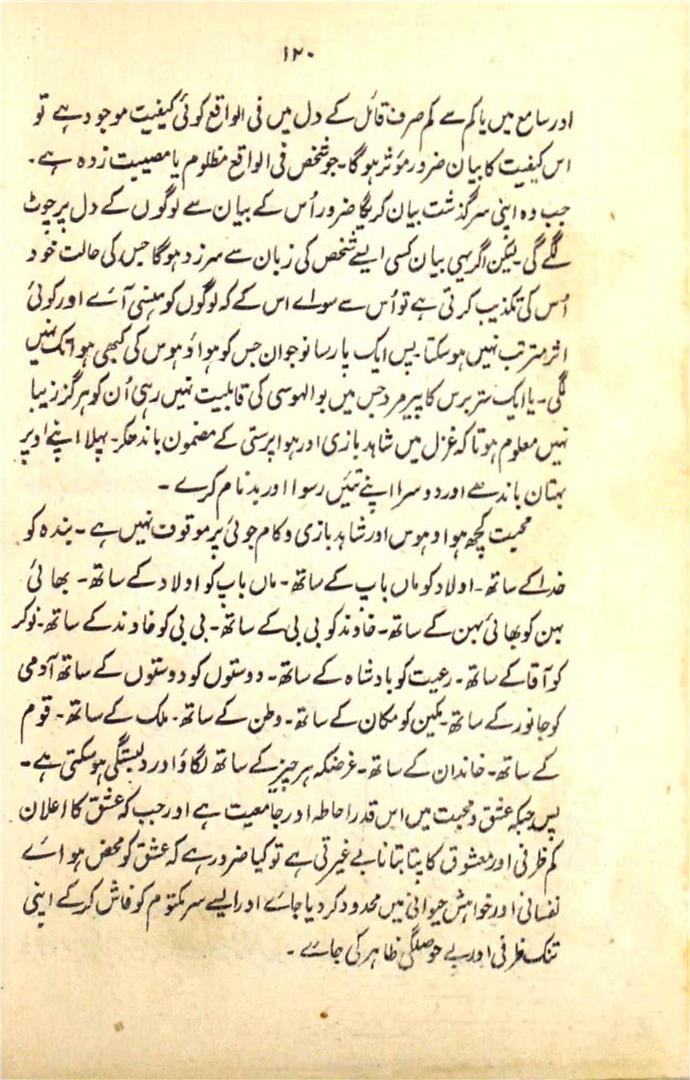 ۱۲۰
اور سامع میں یا کم سے کم صرف قائل کے دل میں فی الواقع کوئی کیفیت موجود ہے تو
اس کیفیت کا بیان ضرور مؤثر ہوگا۔ جو شخص فی الواقع مظلوم یا مصیبت زدہ ہے۔
جب وہ اپنی سرگذشت بیان کریگا ضرور اُس کے بیان سے لوگوں کے دل پر چوٹ
لگے گی۔ لیکن اگر یہی بیان کسی ایسے شخص کی زبان سے سرزد ہوگا جس کی حالت خود
اُس کی تکذیب کرتی ہے تو اُس سے سواے اس کے کہ لوگوں کو ہنسی آئے اور کوئی
اثر مترتب نہیں ہو سکتا۔ پس ایک پارسا نوجوان جس کو ہوا و ہوس کی کبھی ہوا تک نہیں
لگی۔ یا ایک ستر برس کا پیر مرد جس میں بوالہوسی کی قابلیت نہیں رہی اُن کو ہرگز زیبا
نہیں معلوم ہوتا کہ غزل میں شاہد بازی اور ہوا پرستی کے مضمون باندھکر۔ پہلا اپنے اوپر
بہتان باندھے اور دوسرا اپنے تئیں رسوا اور بدنام کرے ۔
محبت کچھ ہوا و ہوس اور شاہد بازی و کام جوئی پر موقوف نہیں ہے ۔ بندہ کو
خدا کے ساتھ ۔ اولاد کو ماں باپ کے ساتھ ۔ ماں باپ کو اولاد کے ساتھ ۔ بھائی
بہن کو بھائی بہن کے ساتھ ۔ خاوند کو بی بی کے ساتھ ۔ بی بی کو خاوند کے ساتھ ۔ نوکر
کو آقا کے ساتھ ۔ رعیت کو بادشاہ کے ساتھ ۔ دوستوں کو دوستوں کے ساتھ آدمی
کو جانور کے ساتھ ۔ مکین کو مکان کے ساتھ ۔ وطن کے ساتھ ۔ ملک کے ساتھ ۔ قوم
کے ساتھ ۔ خاندان کے ساتھ ۔ غرضکہ ہر چیز کے ساتھ لگاؤ اور دلبستگی ہو سکتی ہے ۔
پس جبکہ عشق و محبت میں اس قدر احاطہ اور جامعیت ہے اور جب کہ عشق کا اعلان
کم ظرفی اور معشوق کا پتا بتانا بے غیرتی ہے تو کیا ضرور ہے کہ عشق کو محض ہواے
نفسانی اور خواہش حیوانی میں محدود کر دیا جاے اور ایسے سر مکتوم کو فاش کر کے اپنی
تنک ظرفی اور بے حوصلگی ظاہر کی جاے ۔